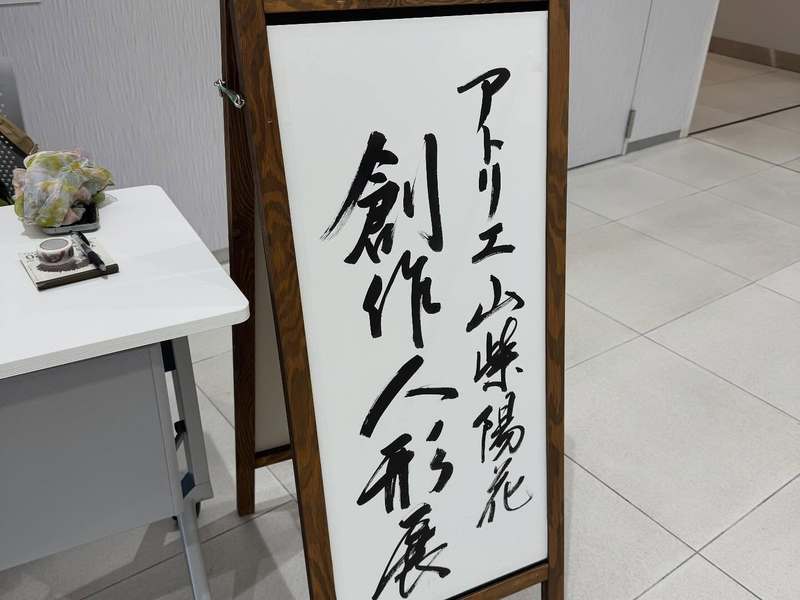 アトリエ山柴陽花
創作人形展